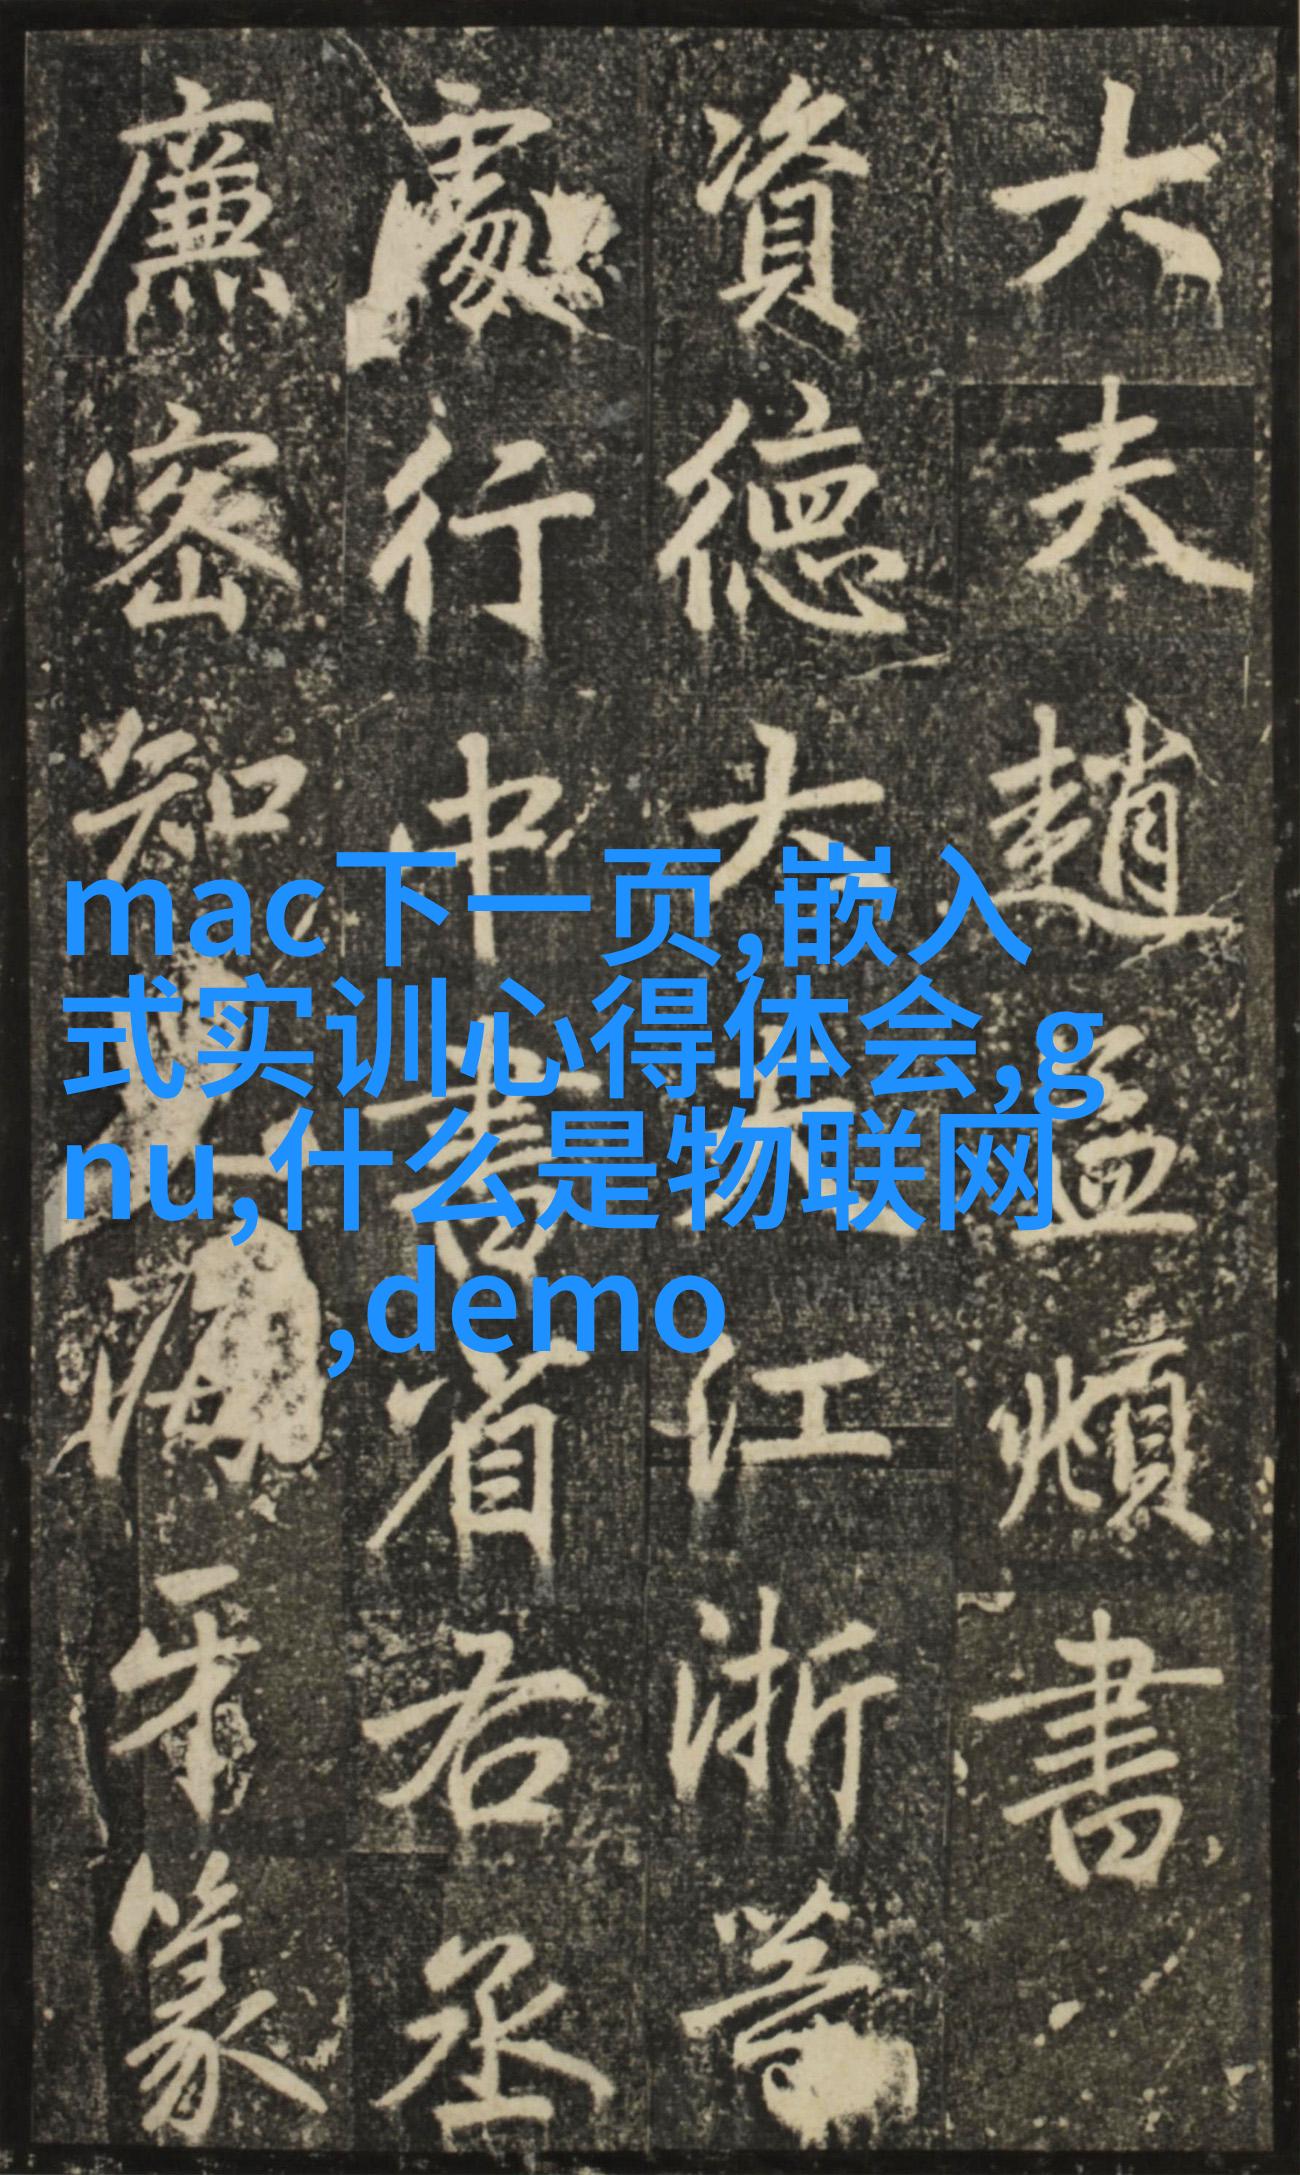 大夫趙孟頫書
資德大夫江浙等
處行中書省右丞
廉密知海牙篆
mac下一页,嵌入
式实训心得体会,g
nu,什么是物联网
,demo